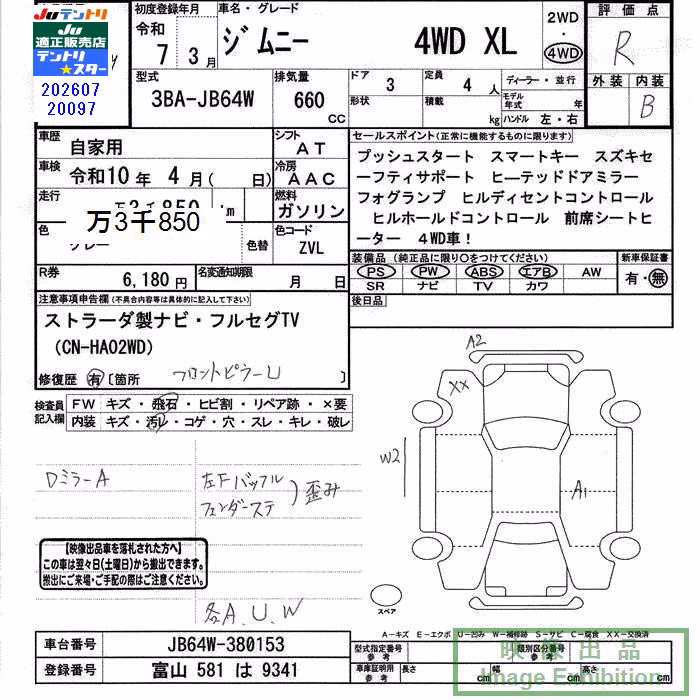 JUテントリ
JU適正販売店
テントリ
★スター
202607
20097
初度登録年月
令和
7年3月
車名・グレード
ジムニー 4WD XL
2WD
・
4WD
評価点
R
外装 内装
B
型式
3BA-JB64W
排気量
660
CC
ドア
3
形状
定員
4人
積載
kg
ディーラー・並行
モデル年式 年
ハンドル 左・右
車歴
自家用
シフト
AT
車検
令和10年4月(日)
冷房
AAC
走行
万3千850
km
燃料
ガソリン
色
グレー
色替
色コード
ZVL
R券
6,180円
名変通知期限
月 日
セールスポイント(正常に機能するものに限ります)
プッシュスタート スマートキー スズキセ
ーフティサポート ヒーテッドドアミラー
フォグランプ ヒルディセントコントロール
ヒルホールドコントロール 前席シートヒ
ーター 4WD車!
装備品(純正品に限り○をつけてください)
PS PW ABS エアB AW
SR ナビ TV カワ
新車保証書
有・無
後日品
注意事項申告欄(不具合内容等は具体的に記入して下さい)
ストラーダ製ナビ・フルセグTV
(CN-HA02WD)
修復歴 有 〔箇所 フロントピラーU 〕
検査員
記入欄
FW キズ・飛石・ヒビ割・リペア跡・×要
内装 キズ・汚レ・コゲ・穴・スレ・キレ・破レ
Dミラー A
左Fバッフル
フェンダーステ
)歪み
【映像出品車を落札された方へ】
この車は翌々日(土曜日)から搬出できます。
搬出にご来場・ご手配の際はご注意ください。
各A.U.W
A2
XX
W2
A1
スペア
A-キズ E-エクボ U-凹み W-補修跡 S-サビ C-腐食 XX-交換済
車台番号
JB64W-380153
登録番号
富山 581 は 9341
型式指定番号
参考
類別区分番号
参考
車庫証明用
参考
長さ cm 幅 cm 高さ cm
映像出品
Image Exhibition